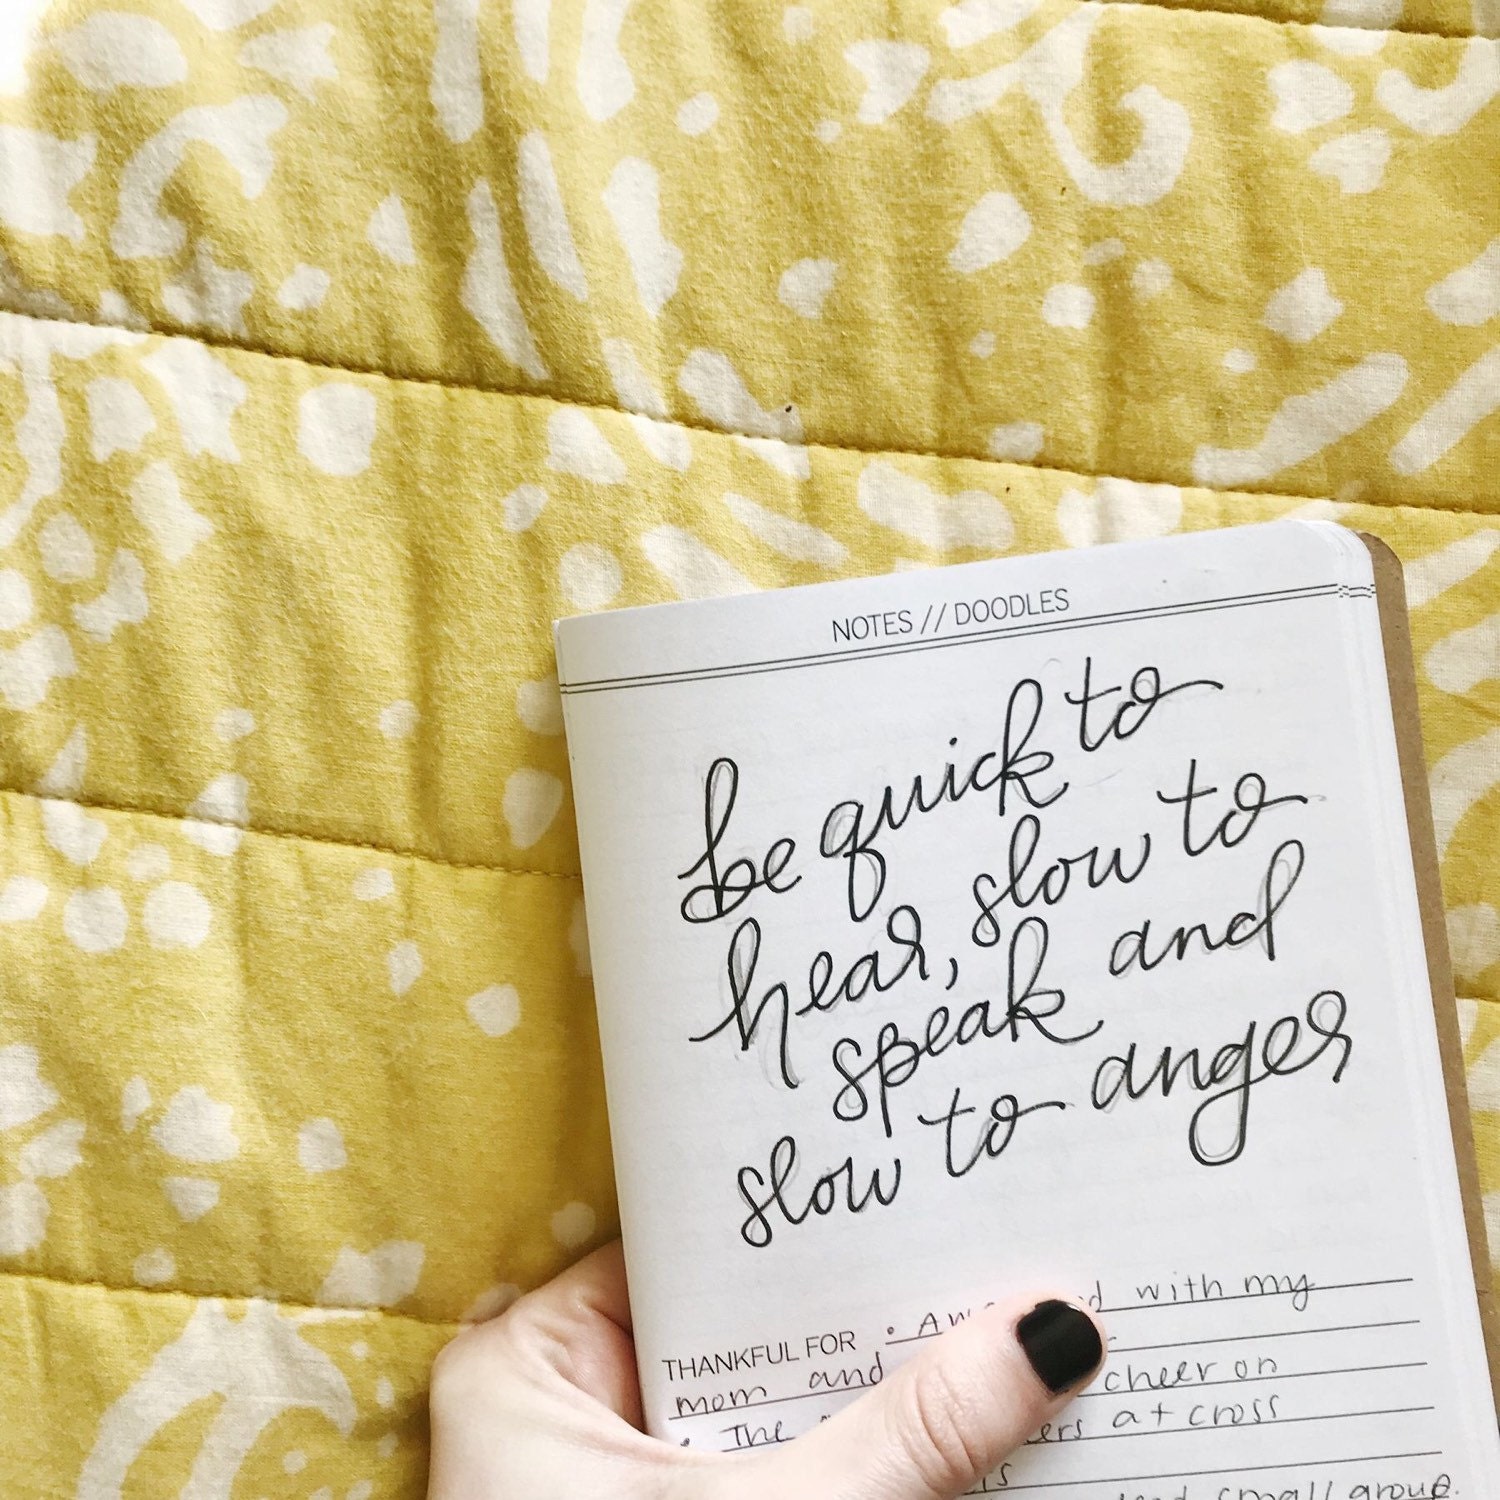 NOTES // DOODLES
be quick to
hear, slow to
speak and
slow to anger
with my
THANKFUL FOR
mom and
cheer on
• The
at cross
small group.